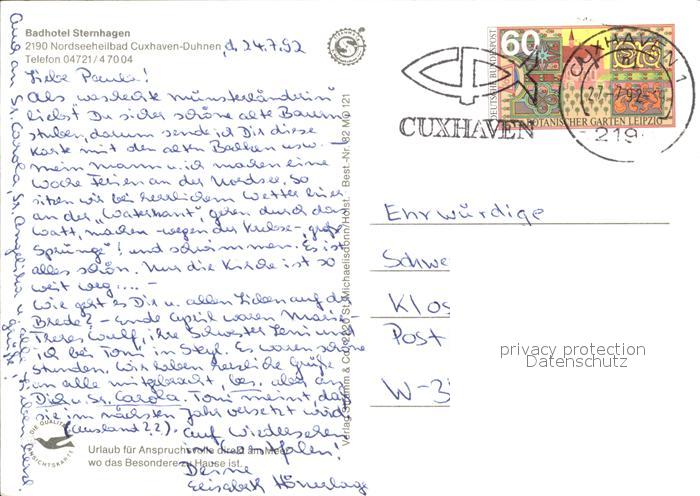 Badhotel Sternhagen
2190 Nordseeheilbad Cuxhaven-Duhnen, d. 24.7.92
Telefon 04721/4 70 04
Liebe Paula!
Als waschechte Münsterländerin
liebst Du sicher schöne alte Bauern
stuben, darum sende ich Dir diese
Karte mit den alten Balken usw. –
Mein Mann u. ich machen eine
Woche Ferien an der Nordsee. So
sitzen wir bei herrlichem Wetter hier
an der „Waterkant“, gehen durch das
Watt, machen – wegen der Krebse – „große
Sprünge“! und schwimmen. Es ist
alles schön. Nur die Kirche ist so
weit weg.... –
Wie geht es Dir u. allen Lieben auf der
Brede? – Ende April waren Maria-
Theres Wulf, ihre Schwester Leni und
ich bei Toni in Steyl. Es waren schöne
Stunden. Wir haben herzliche Grüße
an alle mitgebracht, bes. aber an
Dich u. Sr. Carola. Toni meint, daß
sie im nächsten Jahr versetzt wird
(Ausland??). Auf Wiedersehen
in
Deine
Elisabeth
Auch an Sr. Carola, Sr. Angelika u. alle
Grüße!
DIE QUALITÄTS
ANSICHTSKARTE
Urlaub für Anspruchsvolle direkt am Meer
wo das Besondere zu Hause ist.
Verlag Schramm & Co., 2226 St. Michaelisdonn/Holst. Best.-Nr. 82 Mö 121
DEUTSCHE BUNDESPOST
60
BOTANISCHER GARTEN LEIPZIG
CUXHAVEN
CUXHAVEN 1
27.-7.92
219
Ehrwürdige
Schwe
Klos
Post
W-3
privacy protection
Datenschutz